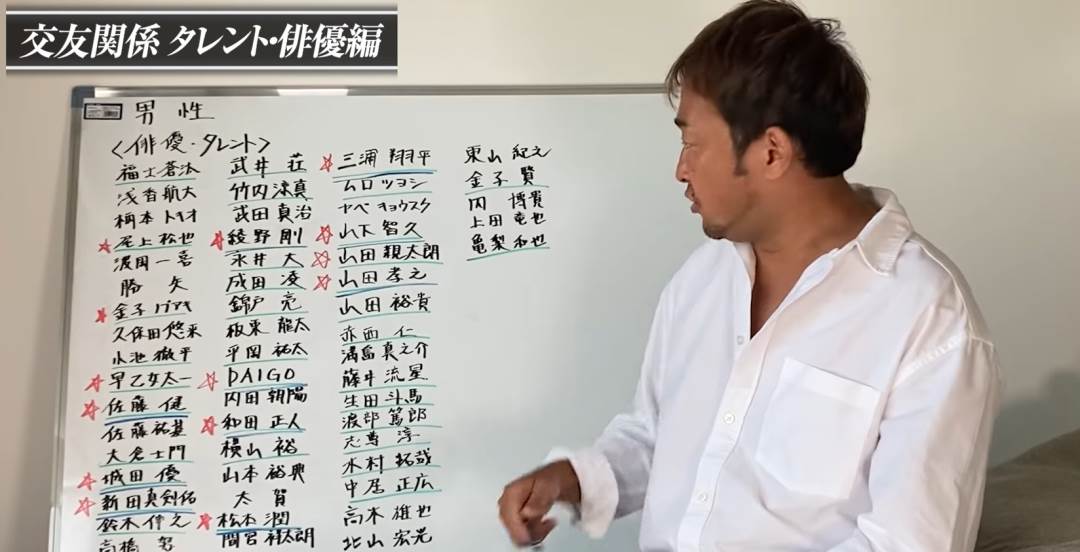 交友関係 タレント・俳優編
男性
<俳優・タレント>
福士蒼汰
浅香航大
柄本トキオ
尾上松也
渡岡一喜
勝矢
金子ノブアキ
久保田悠来
小池徹平
早乙女太一
佐藤健
佐藤祐基
大倉士門
城田優
新田真剣佑
鈴木伸之
武井荘
竹内涼真
武田真治
綾野剛
永井大
成田凌
錦戸亮
板東龍太
平岡祐太
DAIGO
内田朝陽
和田正人
横山裕
山本裕典
太賀
松本潤
間宮祥太朗
三浦翔平
ムロツヨシ
ヤベキョウスケ
山下智久
山田親太朗
山田孝之
山田裕貴
赤西仁
満島真之介
藤井流星
生田斗馬
渡部篤郎
志尊淳
木村拓哉
中居正広
高木雄也
北山宏光
東山紀之
金子賢
内博貴
上田竜也
亀梨和也